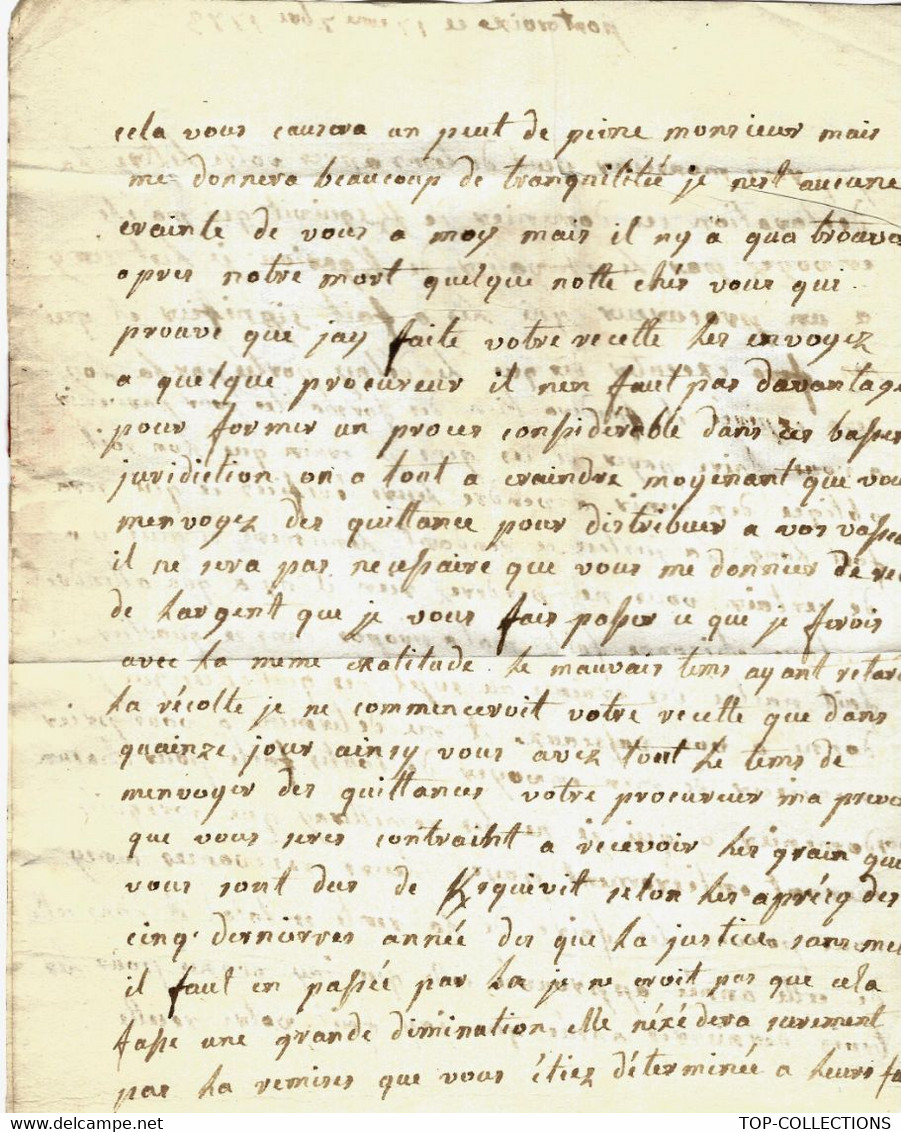 cela vous causera un peut de peine monsieur mais
me donnera beaucoup de tranquilitée je nest aucune
crainte de vous a moy mais il ny a qua trouve
apres notre mort quelque notte chés vous qui
prouve que jay faite votre recette les envoyez
a quelque procureur il nen faut pas davantage
pour former un proces considérable dans ces basses
juridiction on a tout a craindre moyenant que vou
menvoyez des quittance pour distribuer a vos vassa
il ne sera pas necessaire que vous me donnier de re
de largent que je vous fais passer ce que je ferois
avec la meme exatitude. le mauvais tems ayant retar
la récolte je ne commenceroit votre recette que dans
quainze jour ainsy vous avez tout le tems de
menvoyer des quittances votre procureur ma preve
que vous seres contraiht a recevoir les grain que
vous sont dus de Kerguevit selon les aprécy des
cinq dernierres année des que la justice sans mele
il faut en passée par la je ne croit pas que cela
fasse une grande dimination elle néxédera surement
pas la remises que vous étiez déterminée a leurs fa
TOP-COLLECTIONS